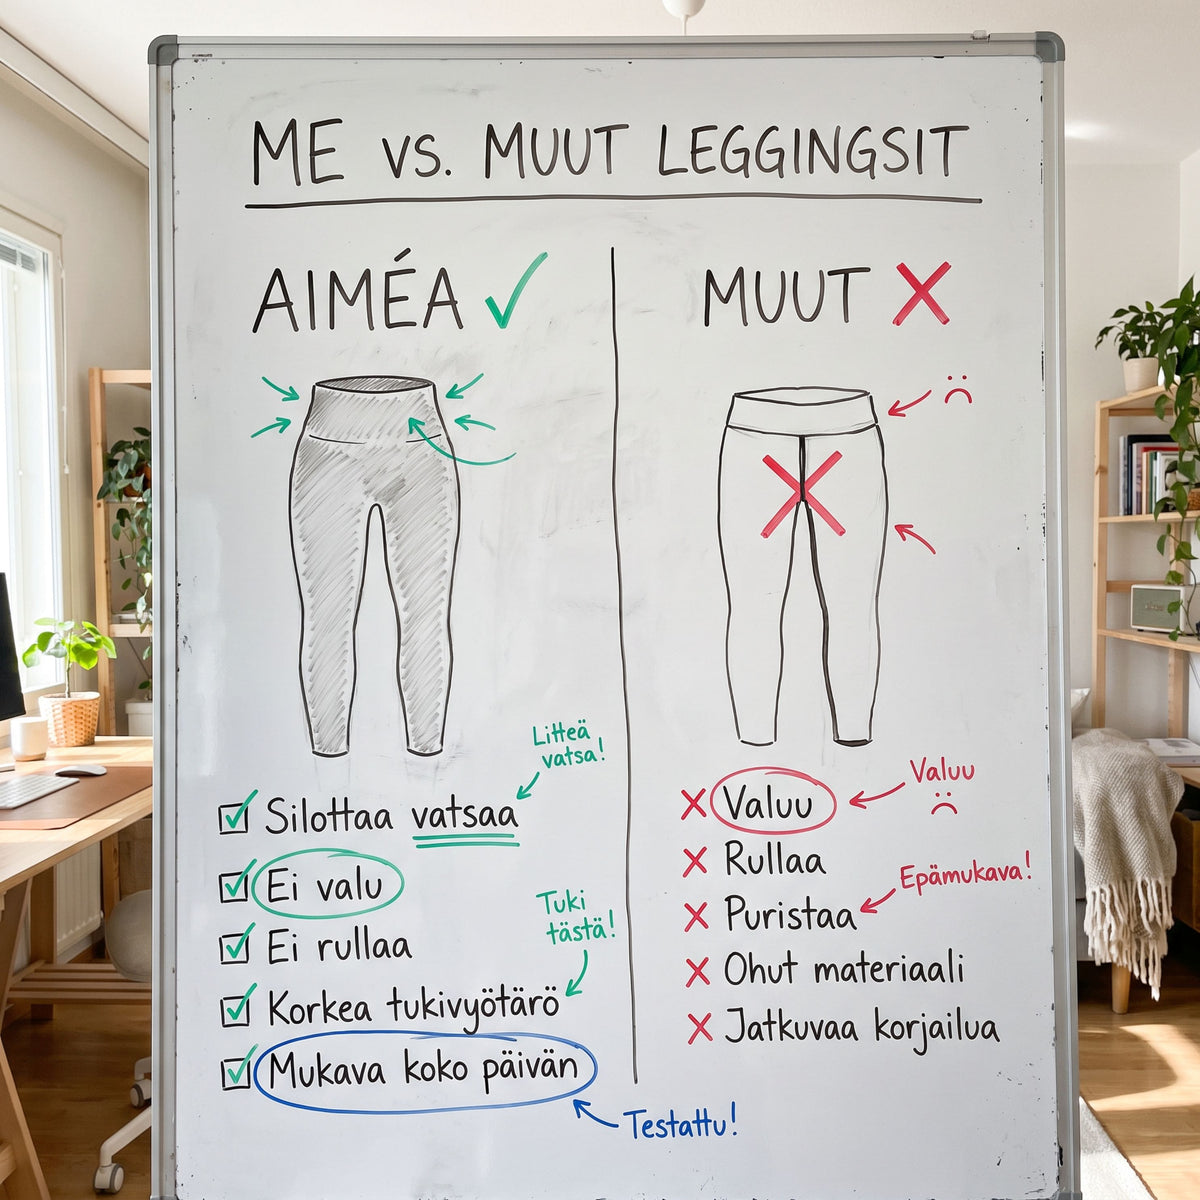 ME vs. MUUT LEGGINGSIT
AIMÉA ✓
Litteä
vatsa!
Silottaa vatsaa
Ei valu
Ei rullaa
Tuki
tästä!
Korkea tukivyötärö
Mukava koko päivän
Testattu!
MUUT X
Valuu
Valuu
Rullaa
Epämukava!
Puristaa
Ohut materiaali
Jatkuvaa korjailua